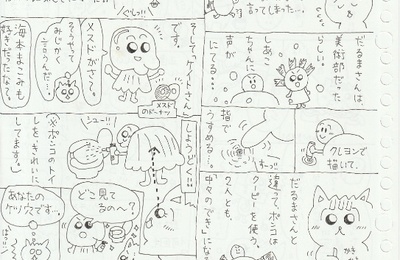 言ってしまった…。
だるまさんは
美術部だった
らしい。
しあこ
ちゃんに
声が
にてる…。
クレヨンで
描いて、
指で
うすめる…。
だるまさんと
違って、ポンコは
クーピーを使う。
2人とも、
中々のでき」にな
ぐしっ!!
そしてケートさん
です。
メスドがさ～。
メスドの
ドーナツ
そうやって
みじかく
言うんだ…。
海本まこみも
好きだったな?。
しょうどく!!
シュー!!
※ポンコのトイ
レをきれいに
してます。
どこ見て
るの〜?
あなたの
ケツ穴です…。